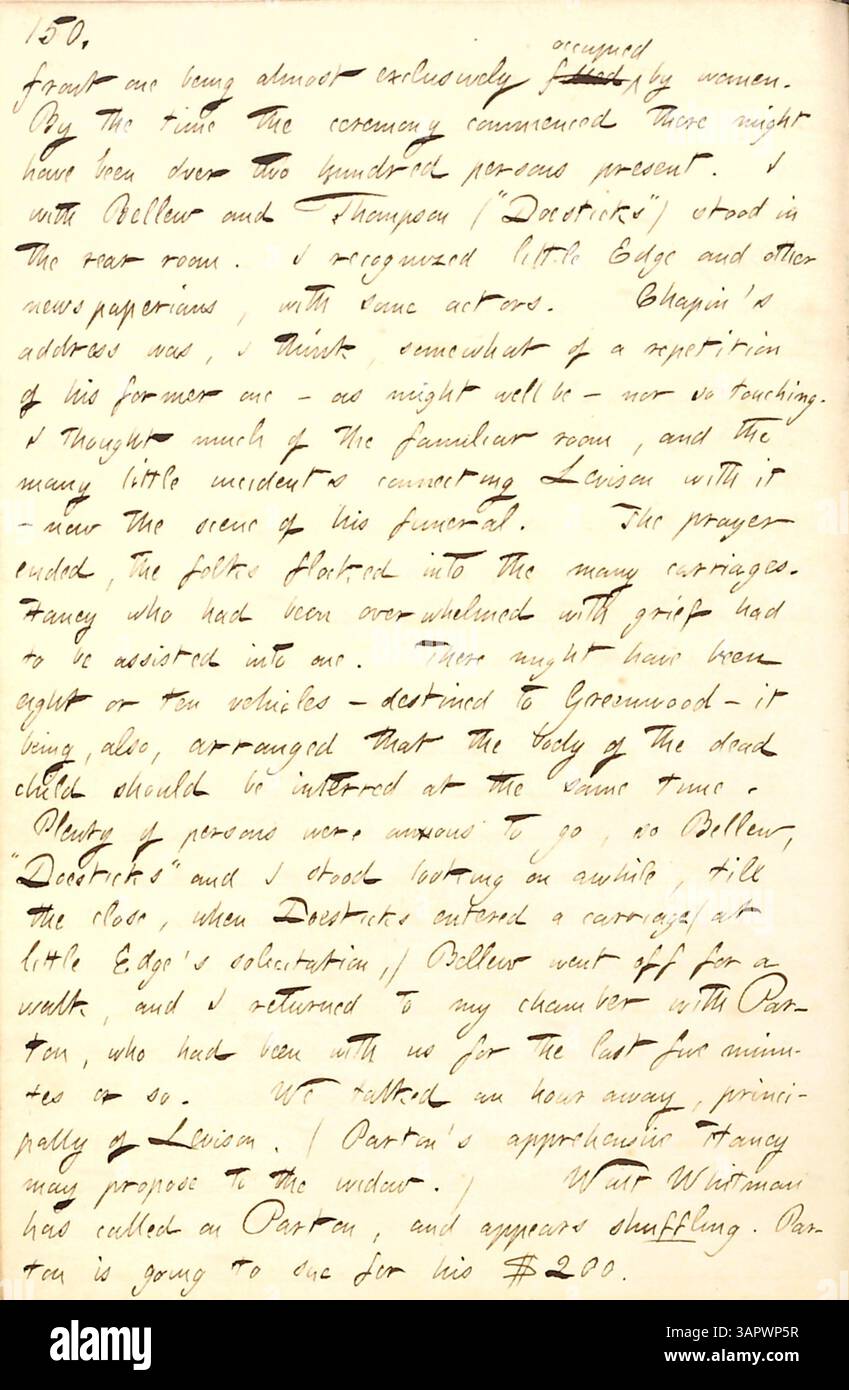 150.
occupied
front one being almost exclusively filled by women.
By the time the ceremony commenced there might
have been over two hundred persons present. I
with Bellew and Thompson ("Doesticks") stood in
the rear room. I recognized little Edge and other
newspaperians, with some actors. Chapin's
address was, I think, somewhat of a repetition
of his former one — as might well be — nor so touching.
I thought much of the familiar room, and the
many little incidents connecting Levison with it
— now the scene of his funeral. The prayer
ended, the folks flocked into the many carriages.
Haney who had been overwhelmed with grief had
to be assisted into one. There might have been
eight or ten vehicles — destined to Greenwood — it
being, also, arranged that the body of the dead
child should be interred at the same time.
Plenty of persons were anxious to go, so Bellew,
"Doesticks" and I stood looking on awhile, till
the close, when Doesticks entered a carriage (at
little Edge's solicitation,) Bellew went off for a
walk, and I returned to my chamber with Par-
ton, who had been with us for the last five minu-
tes or so. We talked an hour away, princi-
pally of Levison. (Parton's apprehensive Haney
may propose to the widow.) Walt Whitman
has called on Parton, and appears shuffling. Par-
ton is going to sue for his $200.
alamy
Image ID: 2APWP5R
www.alamy.com